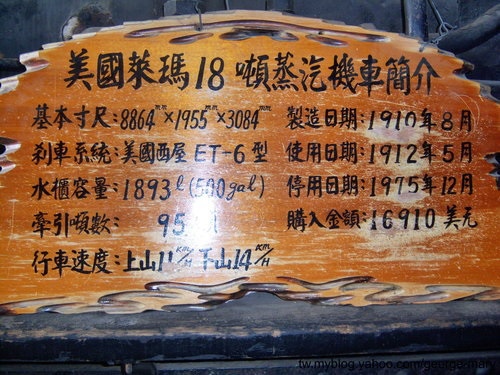 美國萊瑪18噸蒸汽機車簡介
基本寸尺:8864mm×1955mm×3084mm
剎車系統:美國西屋ET-6型
水櫃容量:1893l(500gal)
牽引噸數: 95
行車速度:上山11KM/H下山14KM/H
製造日期:1910年8月
使用日期:1912年5月
停用日期:1975年12月
購入金額:16910美元